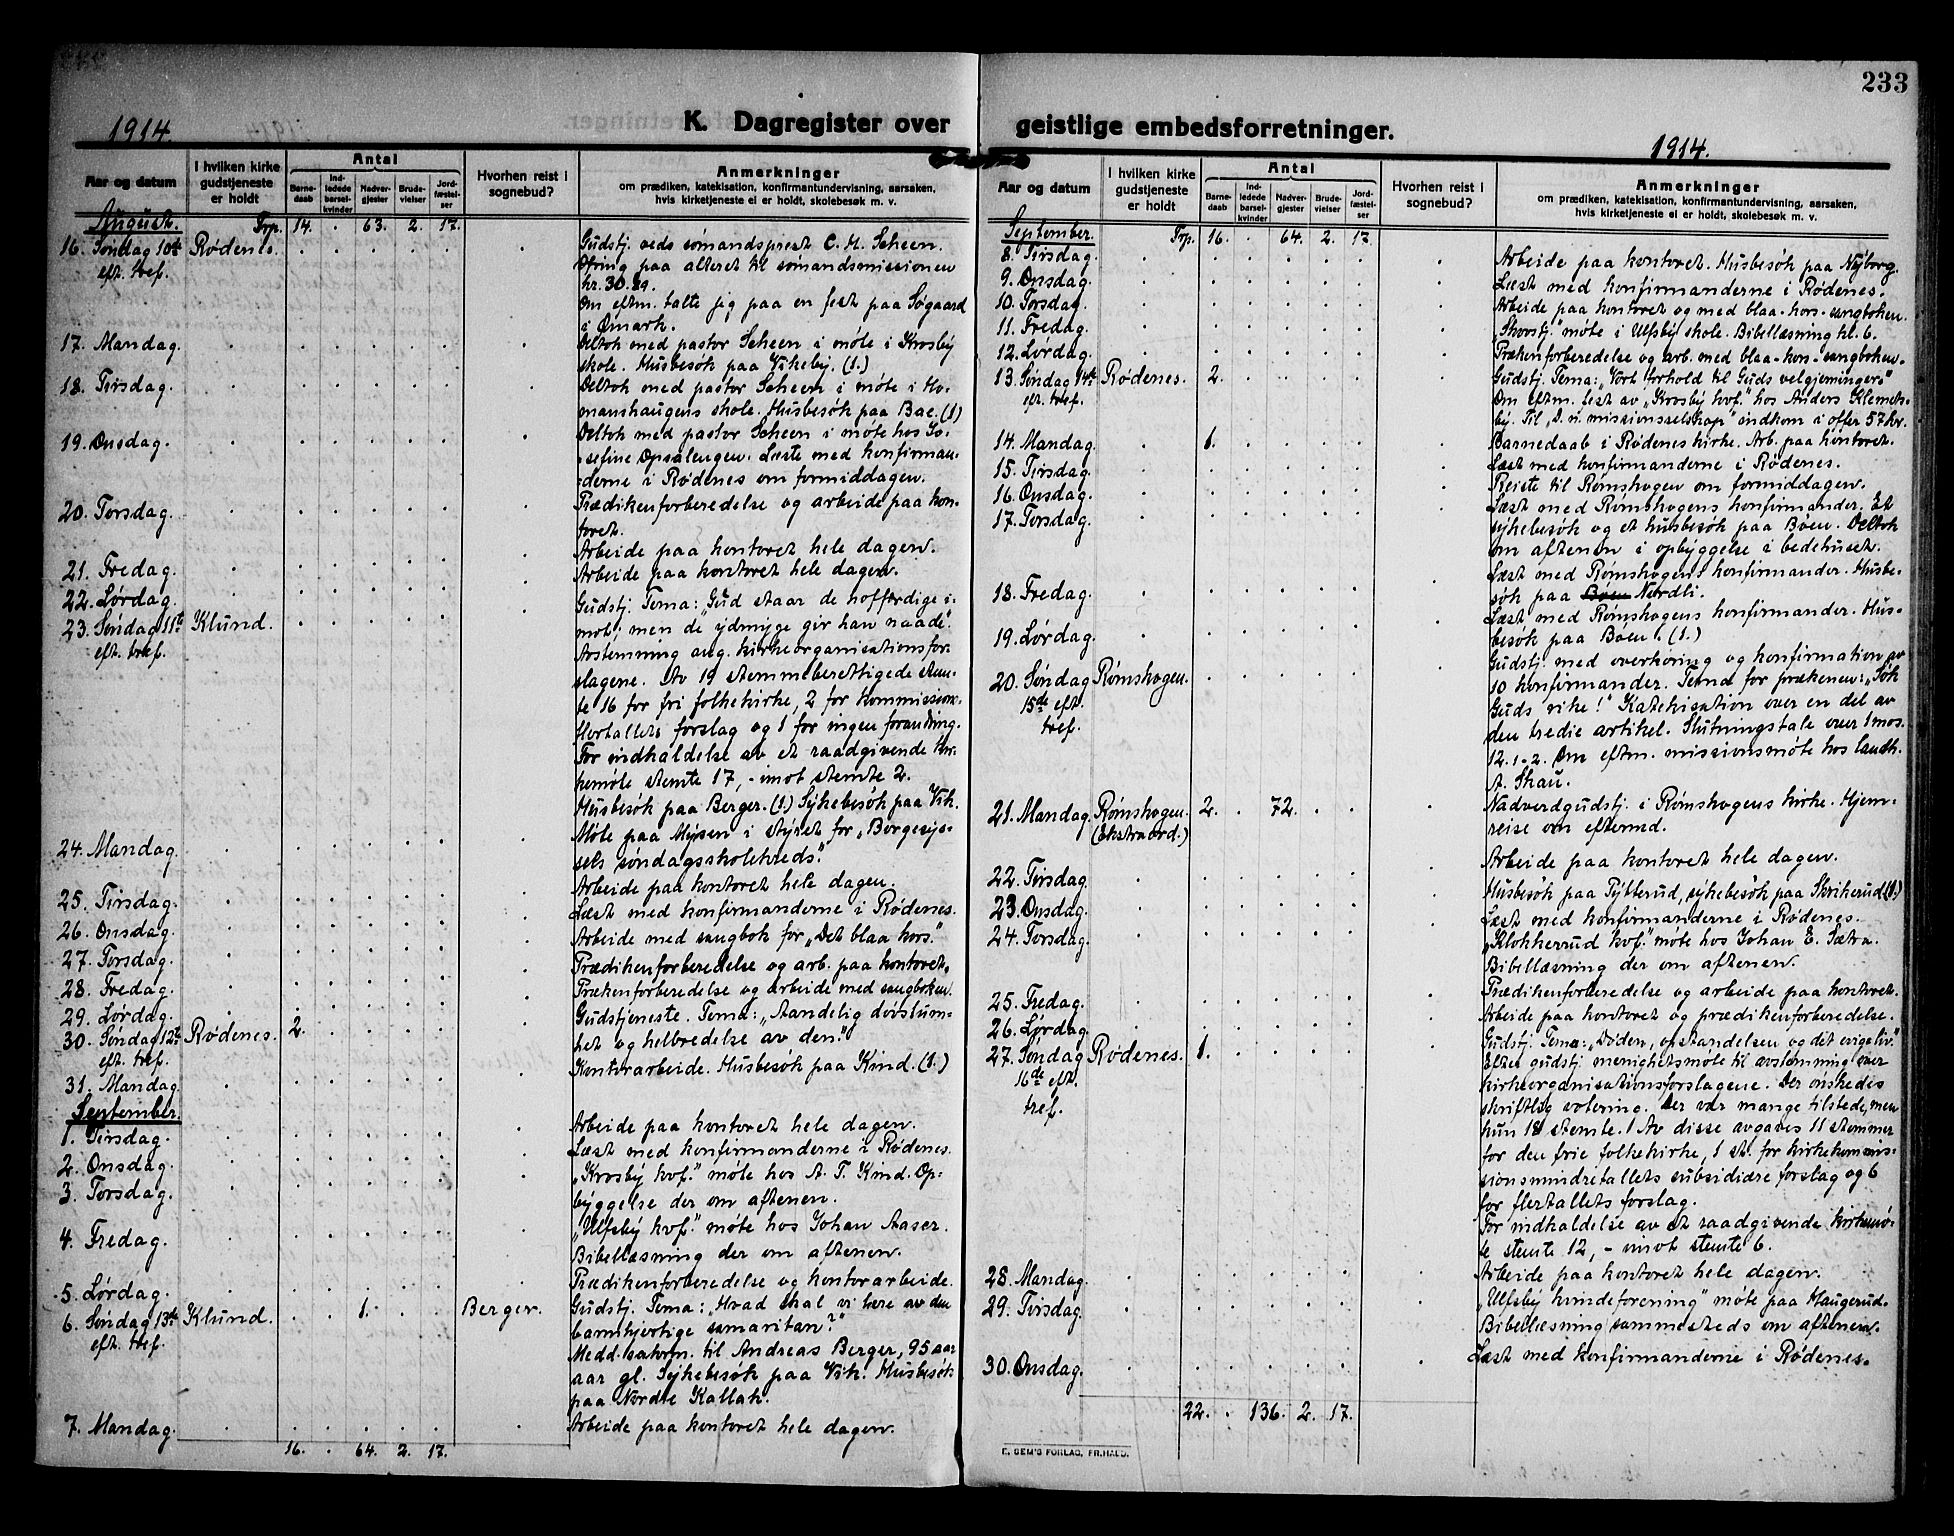 233
K. Dagregister over geistlige embedsforretninger.
1914.
Aar og datum
I hvilken kirke gudstjeneste er holdt
Antal
Barnedaab
Indledede barselkvinder
Nadvergjester
Brudevielser
Jordfæstelser
Hvorhen reist i sognebud?
Anmerkninger
om prædiken, katekisation, konfirmantundervisning, aarsaken, hvis kirketjeneste ei er holdt, skolebesøk m. v.
August. Trp. 14. . 63. 2. 17.
16. Søndag 10de Rødenes. Gudstj. veds sømandsprest C. M. Scheen.
eft. tref. Ofring paa alteret til sømandsmissionen
kr. 30.89.
Om eftm. talte jeg paa en fest paa Søgaard
i Ømark.
17. Mandag. Deltok med pastor Scheen i møte i Krosby
skole. Husbesøk paa Vikeby. (1.)
18. Tirsdag. Deltok med pastor Scheen i møte i Ho-
manshaugens skole. Husbesøk paa Bae. (1)
19. Onsdag. Deltok med pastor Scheen i møte hos Jo-
sefine Opsalengen. Læste med konfirman-
derne i Rødenes om formiddagen.
20. Torsdag. Prædikenforberedelse og arbeide paa kon-
toret.
21. Fredag. Arbeide paa kontoret hele dagen.
22. Lørdag. Arbeide paa kontoret hele dagen.
23. Søndag 11te Klund. Gudstj. Tema: „Gud staar de hoffærdige i-
eft. tref. mot; men de ydmyge gir han naade."
Avstemning ang. kirkeorganisationsfor-
slagene. Av 19 stemmeberettigede stem-
te 16 for fri folkekirke, 2 for kommissions-
flertallets forslag og 1 for ingen forandring.
For indkaldelse av et raadgivende kir-
kemøte stemte 17, - imot stemte 2.
Husbesøk paa Berger. (1.) Sykebesøk paa Vik.
24. Mandag. Møte paa Mysen i styret for „Borgesys-
sels søndagsskolekreds."
25. Tirsdag. Arbeide paa kontoret hele dagen.
26. Onsdag. Læst med konfirmanderne i Rødenes.
27. Torsdag. Arbeide med sangbok for „Det blaa kors."
28. Fredag. Prædikenforberedelse og arb. paa kontoret.
29. Lørdag. Prækenforberedelse og arbeide med sangboken.
30. Søndag 12te Rødenes. 2. Gudstjeneste. Tema: „Aandelig døvstum-
eft. tref. het og helbredelse av den."
31. Mandag. Kontorarbeide. Husbesøk paa Kind. (1.)
September.
1. Tirsdag. Arbeide paa kontoret hele dagen.
2. Onsdag. Læst med konfirmanderne i Rødenes.
3. Torsdag. „Krosby kvf." møte hos A. T. Kind. Op-
byggelse der om aftenen.
4. Fredag. „Ulfsby kvf." møte hos Johan Aaser.
Bibellæsning der om aftenen.
5. Lørdag. Prædikenforberedelse og kontorarbeide.
6. Søndag 13de Klund. 1. Berger. Gudstj. Tema: „Hvad skal vi lære av den
eft. tref. barmhjertige samaritan?"
Medd. satorm. til Andreas Berger, 95 aar
aar gl. Sykebesøk paa Vik. Husbesøk
paa Nordre Kallak.
7. Mandag. Arbeide paa kontoret hele dagen.
16. . 64. 2. 17.
1914.
Aar og datum
I hvilken kirke gudstjeneste er holdt
Antal
Barnedaab
Indledede barselkvinder
Nadvergjester
Brudevielser
Jordfæstelser
Hvorhen reist i sognebud?
Anmerkninger
om prædiken, katekisation, konfirmantundervisning, aarsaken, hvis kirketjeneste ei er holdt, skolebesøk m. v.
September. Trp. 16. . 64. 2. 17.
8. Tirsdag. Arbeide paa kontoret. Husbesøk paa Nyborg.
9. Onsdag. Læst med konfirmanderne i Rødenes.
10. Torsdag. Arbeide paa kontoret og med blaa-kors-sangboken.
11. Fredag. møte i Ulfsby skole. Bibellæsning kl. 6.
12. Lørdag. Prækenforberedelse og arb. med blaa-kors-sangboken.
13. Søndag 14de Rødenes. 2. Gudstj. Tema: „Vort forhold til Guds velgjerninger."
eft. tref. Om eftm. fest av „Krosby kvf." hos Anders Klemets-
by. Til „D. n. missionsselskap" indkom i offer 57 kr.
14. Mandag. 1. Barnedaab i Rødenes kirke. Arb. paa kontoret.
15. Tirsdag. Læst med konfirmanderne i Rødenes.
16. Onsdag. Reiste til Rømskogen om formiddagen.
17. Torsdag. Læst med Rømskogens konfirmander. Et
sykebesøk og et husbesøk paa Bøen. Deltok
om aftenen i opbyggelse i bedehuset.
18. Fredag. Læst med Rømskogens konfirmander. Husbe-
søk paa Bøen Nordli.
19. Lørdag. Læst med Rømskogens konfirmander. Hus-
besøk paa Bøen. (1.)
20. Søndag Rømskogen. Gudstj. med overhøring og konfirmation av
15de eft. 10 konfirmander. Tema for prækenen: „Søk
tref. Guds rike!" Katekisation over en del av
den tredie artikel. Slutningstale over 1 mos.
12. 1-2. Om eftm. missionsmøte hos landh.
A. Skau.
21. Mandag. Rømskogen. 2. . 72. Nadverdgudstj. i Rømskogens kirke. Hjem-
(Ekstraord.) reise om efterm.
22. Tirsdag. Arbeide paa kontoret hele dagen.
23. Onsdag. Husbesøk paa Tytterud, sykebesøk paa Skrikerud (1.)
Læst med konfirmanderne i Rødenes.
24. Torsdag. „Klokkerud kvf." møte hos Johan E. Sætra.
Bibellæsning der om aftenen.
25. Fredag. Prædikenforberedelse og arbeide paa kontoret.
26. Lørdag. Arbeide paa kontoret og prædikenforberedelse.
27. Søndag Rødenes. 1. Gudstj. Tema: „Døden, opstandelsen og det evige liv."
16de eft. Efter gudstj. menighetsmøte til avstemning over
tref. kirkeorganisationsforslagene. Der ønskedes
skriftlig votering. Der var mange tilstede, men
kun 18 stemte. Av disse avgaves 11 stemmer
for den frie folkekirke, 1 st. for kirkekommis-
sionsmindretallets subsidiære forslag og 6
for flertallets forslag.
For indkaldelse av et raadgivende kirkemø-
te stemte 12, - imot stemte 6.
28. Mandag. Arbeide paa kontoret hele dagen.
29. Tirsdag. „Ulfsby kvindeforening" møte paa Haugerud.
Bibellæsning sammesteds om aftenen.
30. Onsdag. Læst med konfirmanderne i Rødenes.
22. . 136. 2. 17.
E. SEM'S FORLAG, FR.HALD.